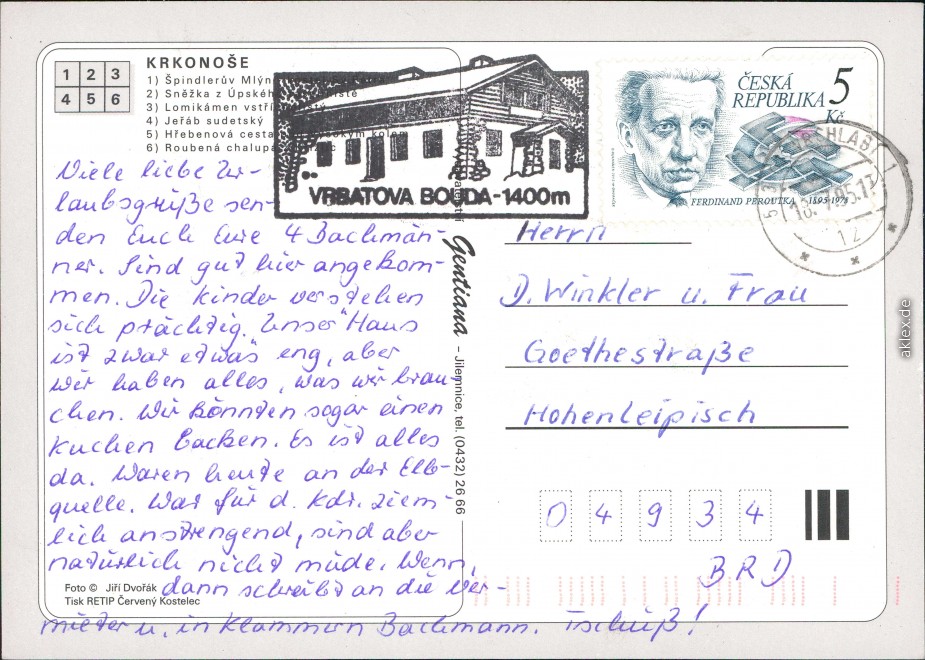 KRKONOŠE
1 2 3
4 5 6
1) Špindlerův Mlýn
2) Sněžka z Úpské
3) Lomikámen vstří
4) Jeřáb sudetský
5) Hřebenová cesta
6) Roubená chalupa
VRBATOVA BOUDA-1400m
ČESKÁ
REPUBLIKA 5
Kč
FERDINAND PEROUTKA 1895-1978
12
Viele liebe Ur-
laubsgrüße sen-
den Euch Eure 4 Bachmän-
ner. Sind gut hier angekom-
men. Die Kinder verstehen
sich prächtig. Unser "Haus
ist zwar etwas" eng, aber
wir haben alles, was wir brau-
chen. Wir könnten sogar einen
Kuchen backen. Es ist alles
da. Waren heute an der Elb-
quelle. War für d. Kdr. ziem-
lich anstrengend, sind aber
natürlich nicht müde. Wenn,
dann schreibt an die Ver-
mieter u. in Klammern Bachmann. Tschüß!
Foto © Jiří Dvořák
Tisk RETIP Červený Kostelec
Gentiana – Jilemnice, tel. (0432) 26 66
Herrn
D. Winkler u. Frau
Goethestraße
Hohenleipisch
0 4 9 3 4
BRD
aklex.de